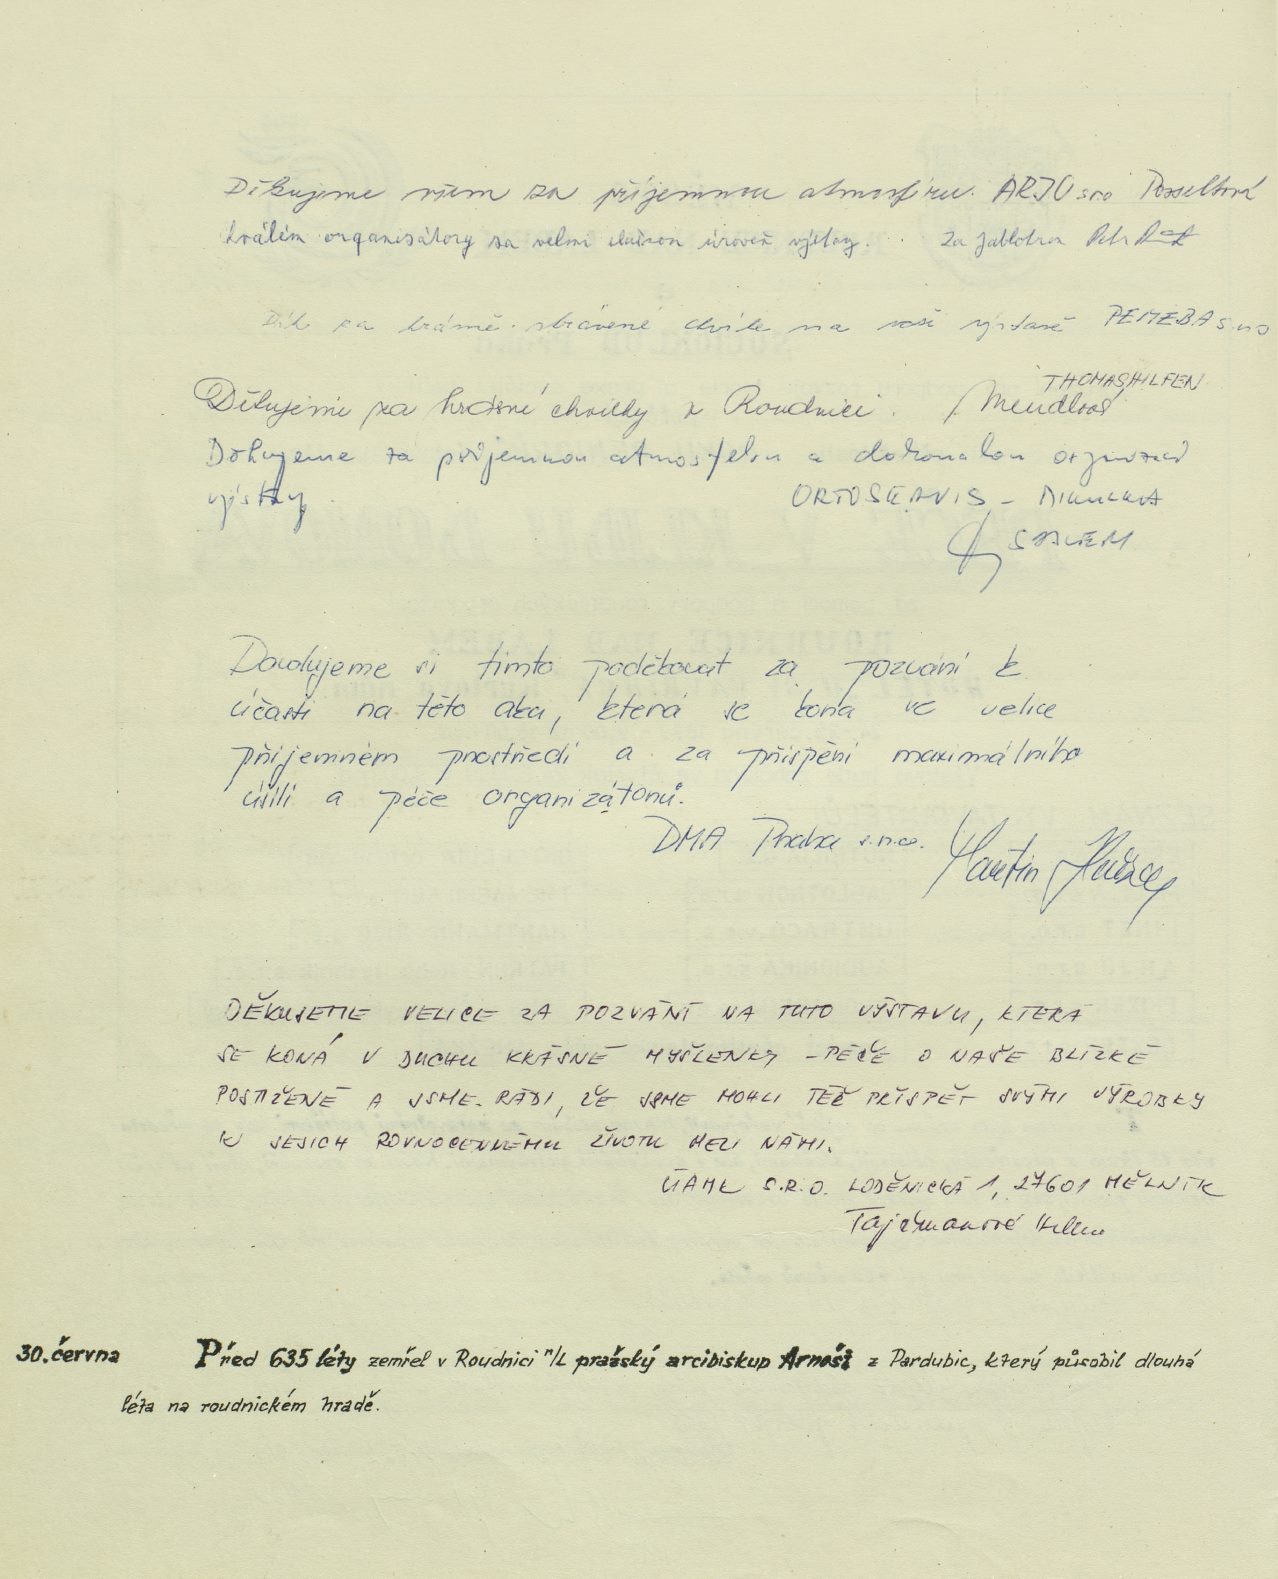 Děkujeme všem za příjemnou atmosféru. ARJO sro Posseltová
Chválím organizátory za velmi slušnou úroveň výstavy. Za Jablotron Petr
Dík za krásně strávené chvíle na vaší výstavě PEMEBA s.r.o
THOMASHILFEN
Děkujeme za krásné chvilky v Roudnici.
Děkujeme za příjemnou atmosferu a dokonalou organizaci
výstavy. ORTOSERVIS - MIKULKA
Dovolujeme si tímto poděkovat za pozvání k
účasti na této akci, která se koná ve velice
příjemném prostředí a za přispění maximálního
úsilí a péče organizátorů.
DMA Praha s.r.o. Martin
DĚKUJEME VELICE ZA POZVÁNÍ NA TUTO VÝSTAVU, KTERÁ
SE KONÁ V DUCHU KRÁSNÉ MYŠLENKY - PÉČE O NAŠE BLÍZKÉ
POSTIŽENÉ A JSME RÁDI, ŽE JSME MOHLI TÉŽ PŘISPĚT SVÝMI VÝROBKY
K JEJICH ROVNOCENNÉMU ŽIVOTU MEZI NÁMI.
S.R.O. LODĚNICKÁ 1, 27601 MĚLNÍK
30. června Před 635 léty zemřel v Roudnici n/L pražský arcibiskup Arnošt z Pardubic, který působil dlouhá
léta na roudnickém hradě.